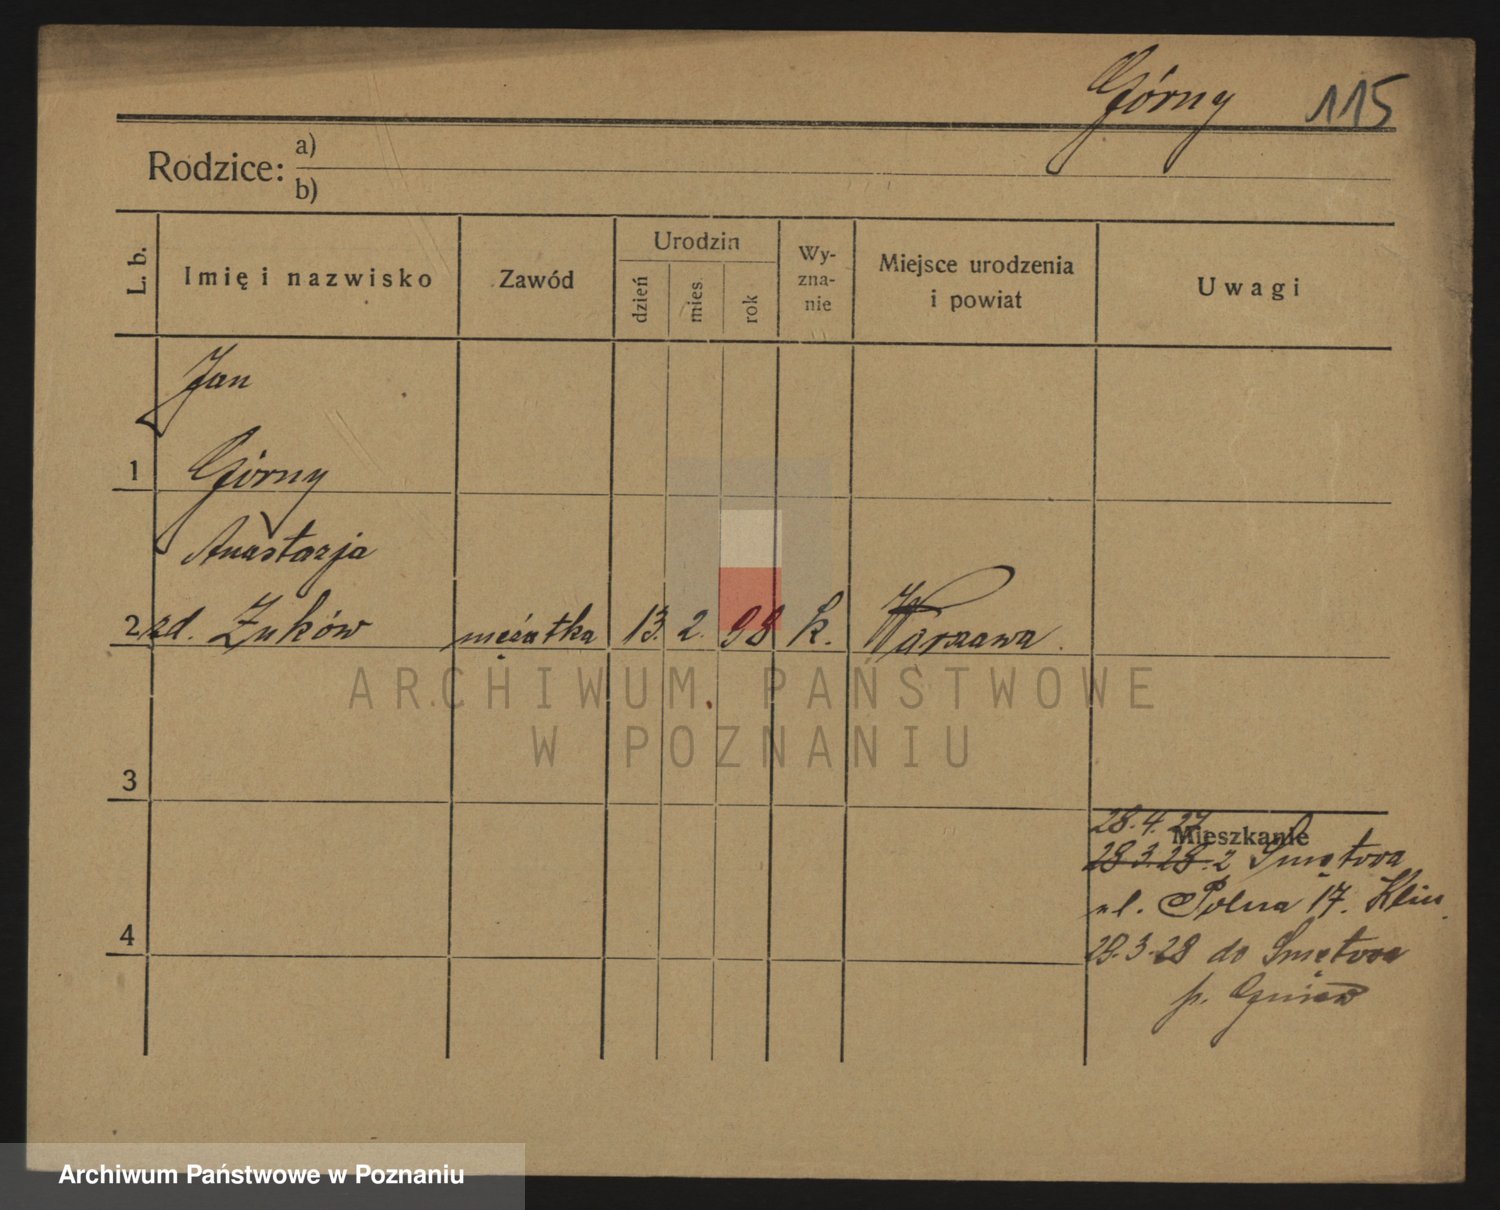 Górny 115
Rodzice: a)
b)
L. b. Imię i nazwisko Zawód Urodzin dzień mies. rok Wy-zna-nie Miejsce urodzenia i powiat Uwagi
Jan
1 Górny
Anastazja
2 zd. Żuków mężatka 13. 2. 98 k. Warszawa
ARCHIWUM PAŃSTWOWE
W POZNANIU
3
28.4.27
Mieszkanie
28.3.28. z Smętowa
ul. Polna 17. Klin.
4
28.3.28 do Smętowa
p. Gniew
Archiwum Państwowe w Poznaniu